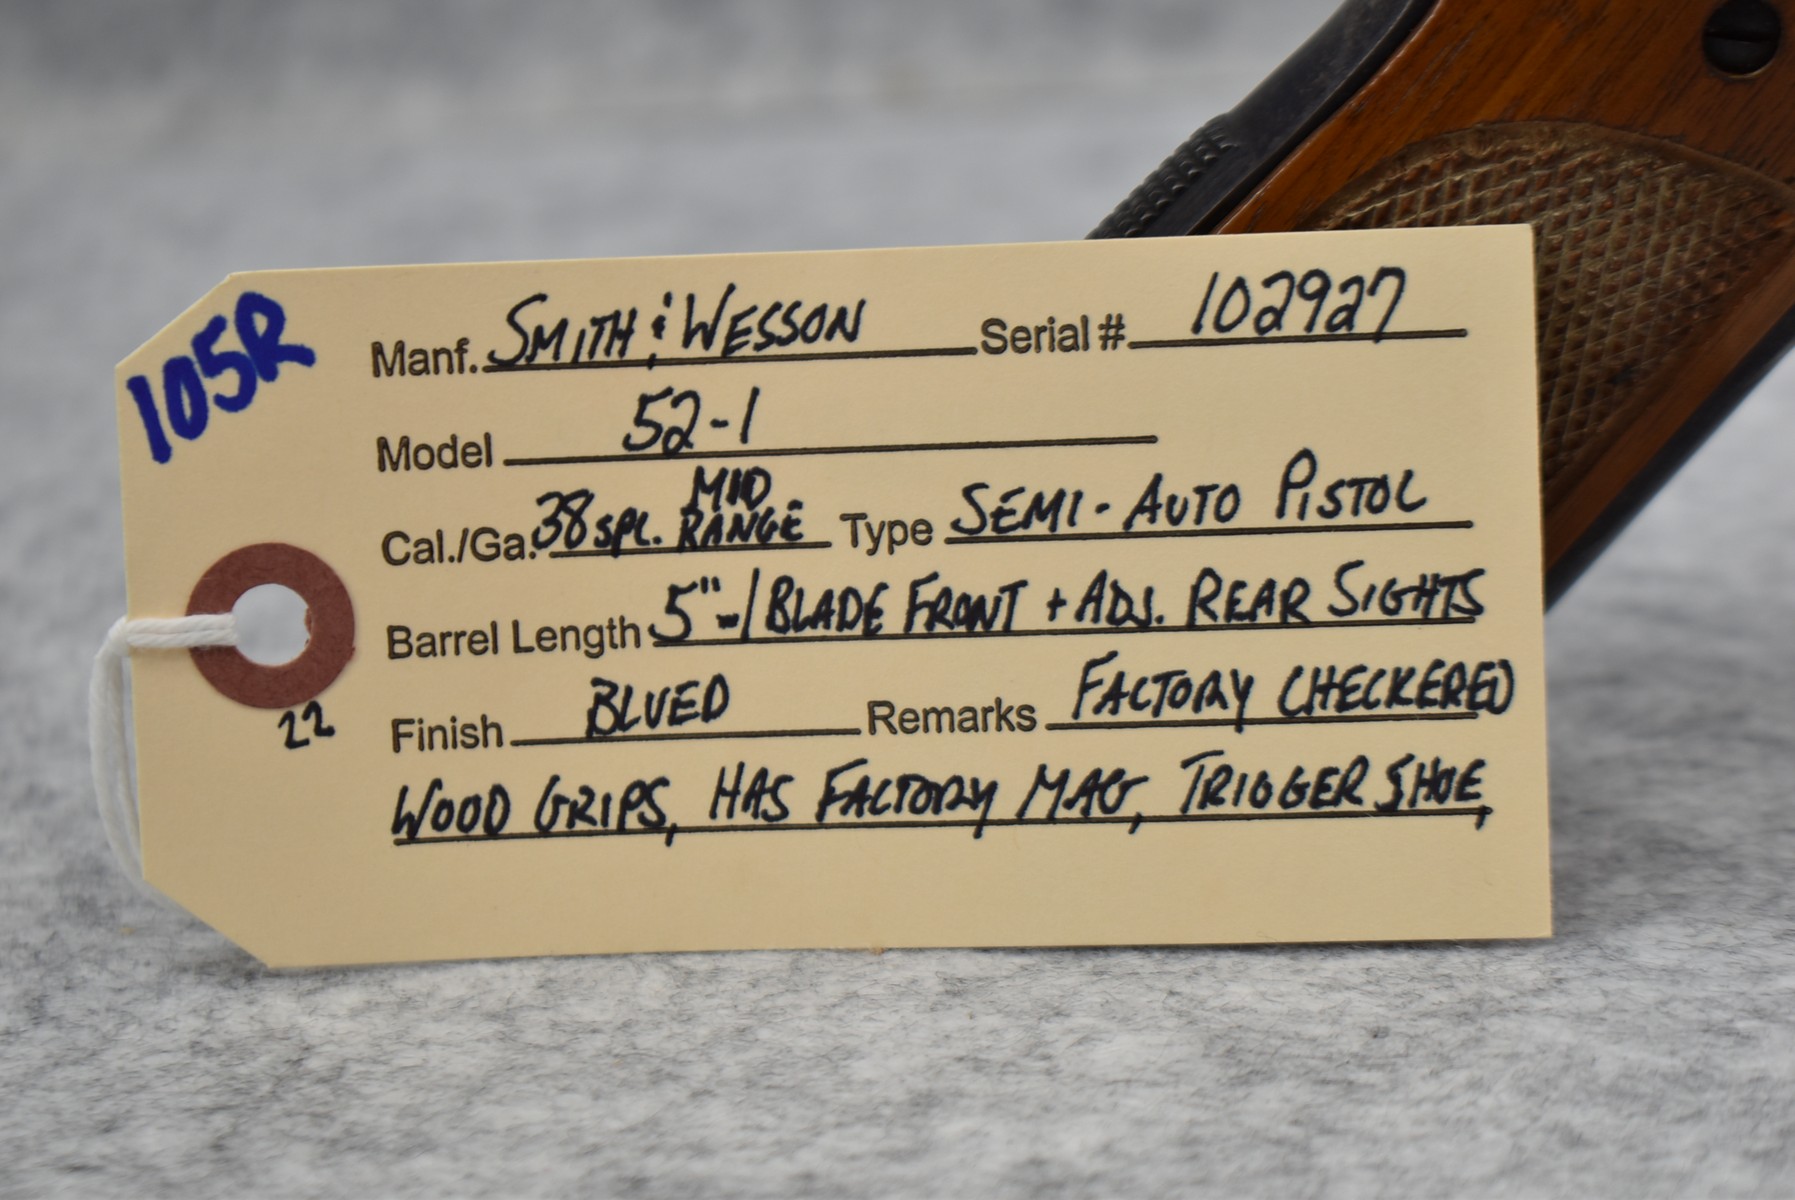 105R
Manf. SMITH & WESSON Serial # 102927
Model 52-1
Cal./Ga. 38 SPL. MID RANGE Type SEMI-AUTO PISTOL
Barrel Length 5" w/ BLADE FRONT + ADJ. REAR SIGHTS
22
Finish BLUED Remarks FACTORY CHECKERED
WOOD GRIPS, HAS FACTORY MAG, TRIGGER SHOE,